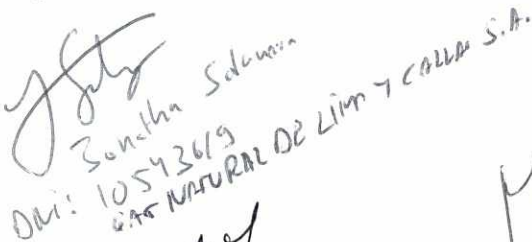 Jonatha Solomon
DNI: 10543619
GAS NATURAL DE LIMA Y CALLAO S.A.